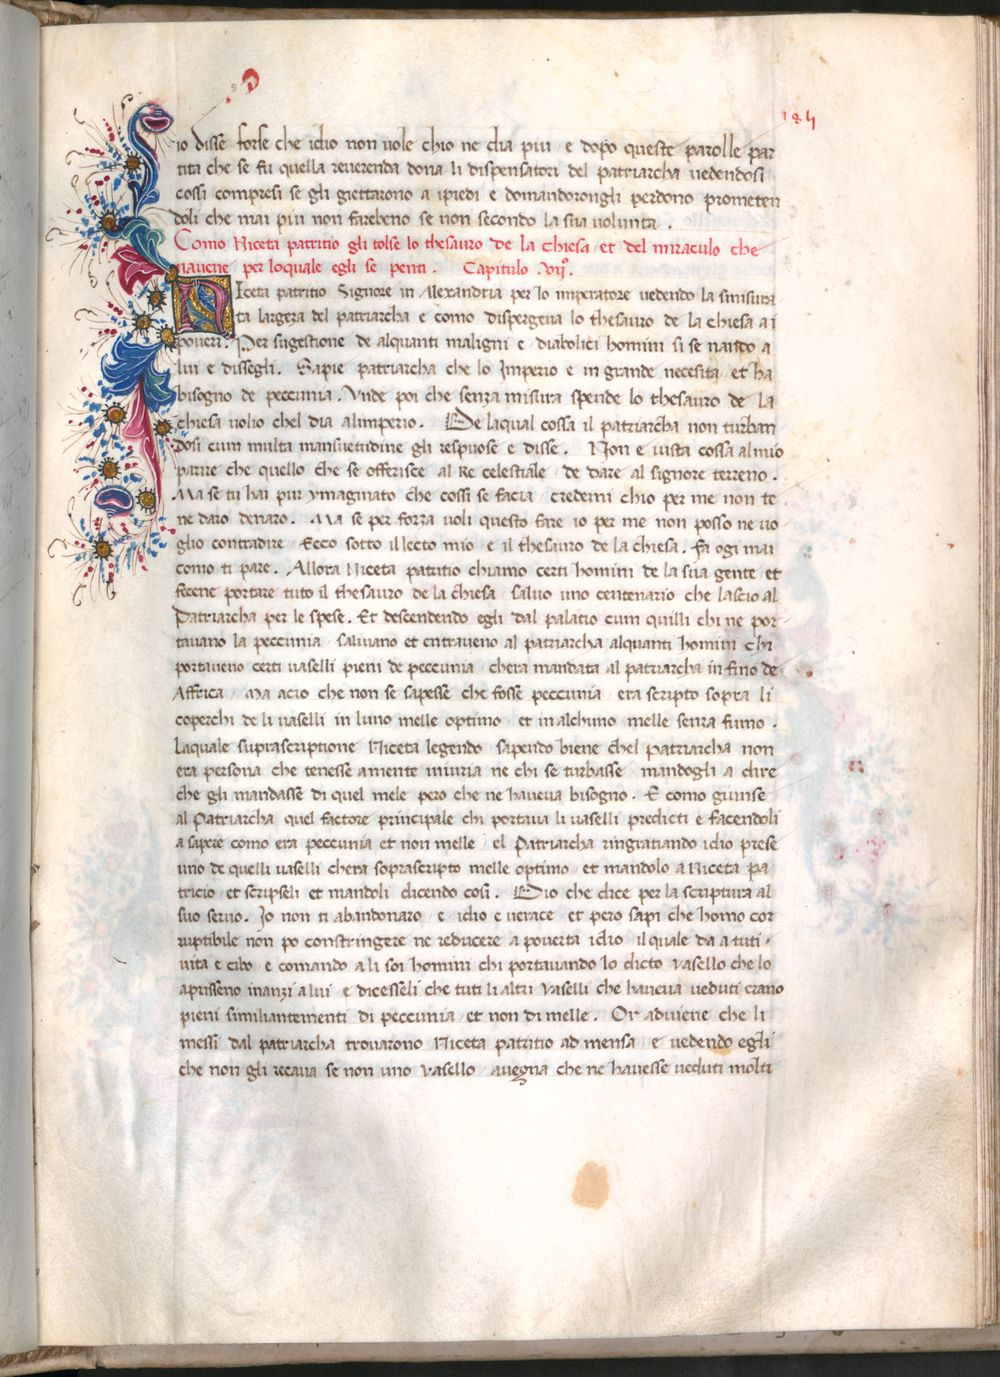 184
io disse forse che idio non uole chio ne dia piu e dopo queste parolle par
tita che se fu quella reuerenda dona li dispensatori del patriarcha uedendosi
cossi compresi se gli giettarono a ipiedi e domandorongli perdono prometen
doli che mai piu non farebeno se non secondo la sua volunta .
Como Niceta patritio gli tolse lo thesauro de la chiesa et del miraculo che
nauene per loquale egli se penti . Capitulo .vijº.
Niceta patritio Signore in Alexandria per lo imperatore uedendo la smisura
ta largeza del patriarcha e como dispergeua lo thesauro de la chiesa a i
poueri. Per sugestione de alquanti maligni e diabolici homini si se nando a
lui e dissegli. Sapie patriarcha che lo Imperio e in grande necesita et ha
bisogno de peccunia. Unde poi che senza misura spende lo thesauro de la
chiesa uolio chel dia alimperio. De laqual cossa il patriarcha non turban
dosi cum multa mansuetudine gli respuose e disse. Non e iusta cossa al mio
parire che quello che se offerisce al Re celestiale de dare al signore terreno.
Ma se tu hai pur ymaginato che cossi se facia credemi chio per me non te
ne daro denaro. Ma se per forza uoli questo fare io per me non posso ne uo
glio contradire Ecco sotto il lecto mio e il thesauro de la chiesa. fa ogi mai
como ti pare. Allora Niceta patritio chiamo certi homini de la sua gente et
fecene portare tuto il thesauro de la chiesa saluo uno centenario che lascio al
Patriarcha per le spese. Et descendendo egli dal palatio cum quilli chi ne por
tauano la peccunia saliuano et entraueno al patriarcha alquanti homini chi
portaueno certi uaselli pieni de peccunia chera mandata al patriarcha in fino de
Affrica Ma acio che non se sapesse che fosse peccunia era scripto sopra li
coperchi de li uaselli in luno melle optimo et in alchuno melle senza fumo .
Laquale suprascriptione Niceta legendo sapendo biene chel Patriarcha non
era persona che tenesse amente iniuria ne chi se turbasse mandogli a dire
che gli mandasse di quel mele pero che ne haueua bisogno. E como giunse
al Patriarcha quel factore principale chi portaua li uaselli predicti e facendoli
a sapere como era peccunia et non melle el Patriarcha ringratiando idio prese
uno de quelli uaselli chera soprascripto melle optimo et mandolo a Niceta pa
tricio et scripseli et mandoli dicendo cosi. Dio che dice per la scriptura al
suo seruo. Io non ti abandonaro e idio e uerace et pero sapi che homo cor
ruptibile non po constringere ne reducere a pouerta idio il quale da a tuti
vita e cibo e comando a li soi homini chi portauando lo dicto vasello che lo
aprisseno inanzi a lui e dicesseli che tuti li altri vaselli che haueua ueduti erano
pieni similiantementi di peccunia et non di melle. Or aduiene che li
messi dal patriarcha trouarono Niceta patritio ad mensa e uedendo egli
che non gli recaua se non uno vasello auegna che ne hauesse ueduti molti